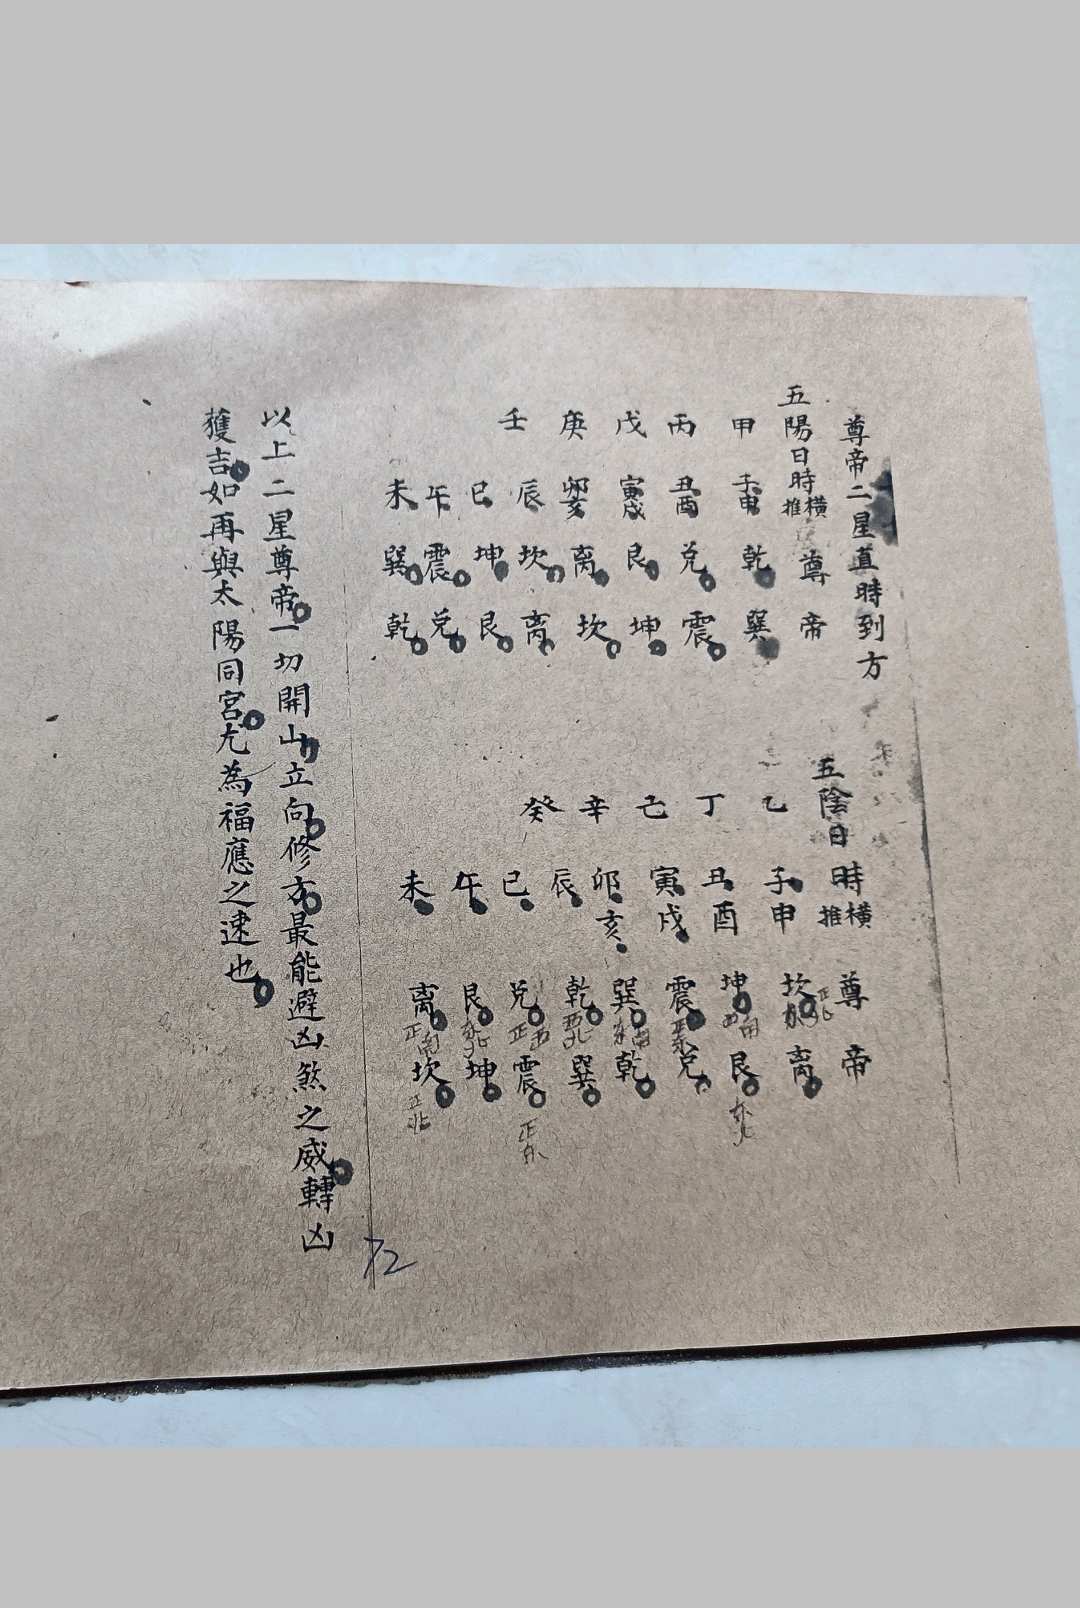 尊帝二星直時到方
五陽日時橫推 尊 帝
甲 子申 乾 巽
丙 丑酉 兌 震
戊 寅戌 艮 坤
庚 卯亥 离 坎
壬 辰 坎 离
巳 坤 艮
午 震 兌
未 巽 乾
五陰日 時橫推 尊 帝
乙 子申 坎 正北 离
丁 丑酉 坤 西南 艮 东北
己 寅戌 震 正东 兌
辛 卯亥 巽 东南 乾
癸 辰 乾 西北 巽
巳 兌 正西 震 正东
午 艮 东北 坤
未 离 正南 坎 正北
以上二星尊帝一切開山立向修方最能避凶煞之威轉凶
獲吉如再與太陽同宮尤為福應之速也